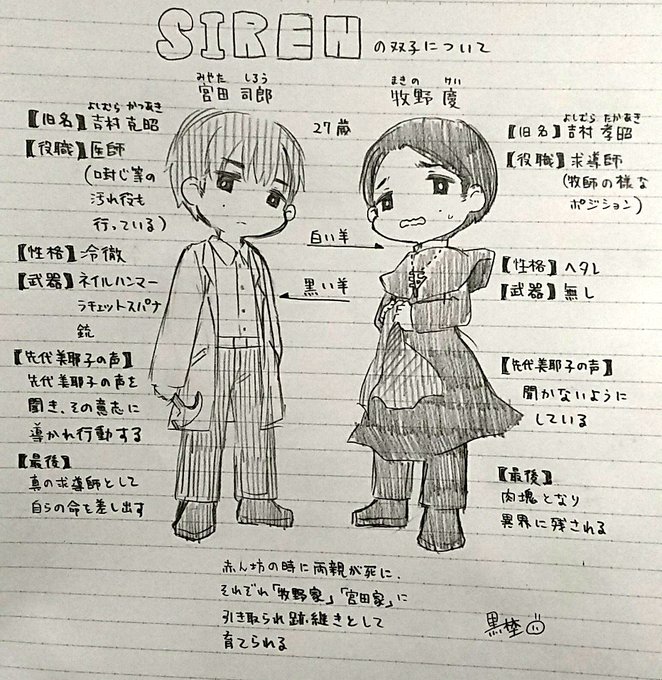 SIREN の双子について
みやた しろう
宮田 司郎
まきの けい
牧野 慶
27歳
よしむら かつあき
【旧名】吉村 克昭
【役職】医師
(口封じ等の
汚れ役も
行っている)
【性格】冷徹
【武器】ネイルハンマー
ラチェットスパナ
銃
【先代美耶子の声】
先代美耶子の声を
聞き、その意志に
導かれ行動する
【最後】
真の求導師として
自らの命を差し出す
白い羊
黒い羊
よしむら たかあき
【旧名】吉村 孝昭
【役職】求導師
(牧師の様な
ポジション)
【性格】ヘタレ
【武器】無し
【先代美耶子の声】
聞かないように
している
【最後】
肉塊となり
異界に残される
赤ん坊の時に両親が死に、
それぞれ「牧野家」「宮田家」に
引き取られ跡継ぎとして
育てられる